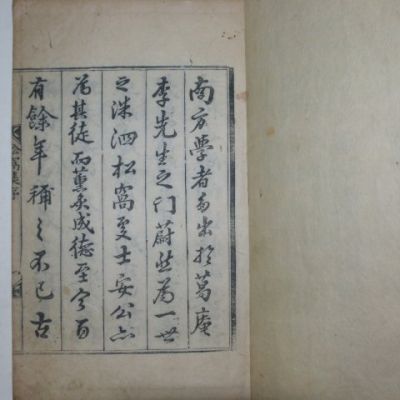 南方學者多出於葛庵
李先生之門蔚然爲一世
之洙泗松窩處士安公亦
爲其徒而薰炙成德至今百
有餘年稱之不已古
松窩集序